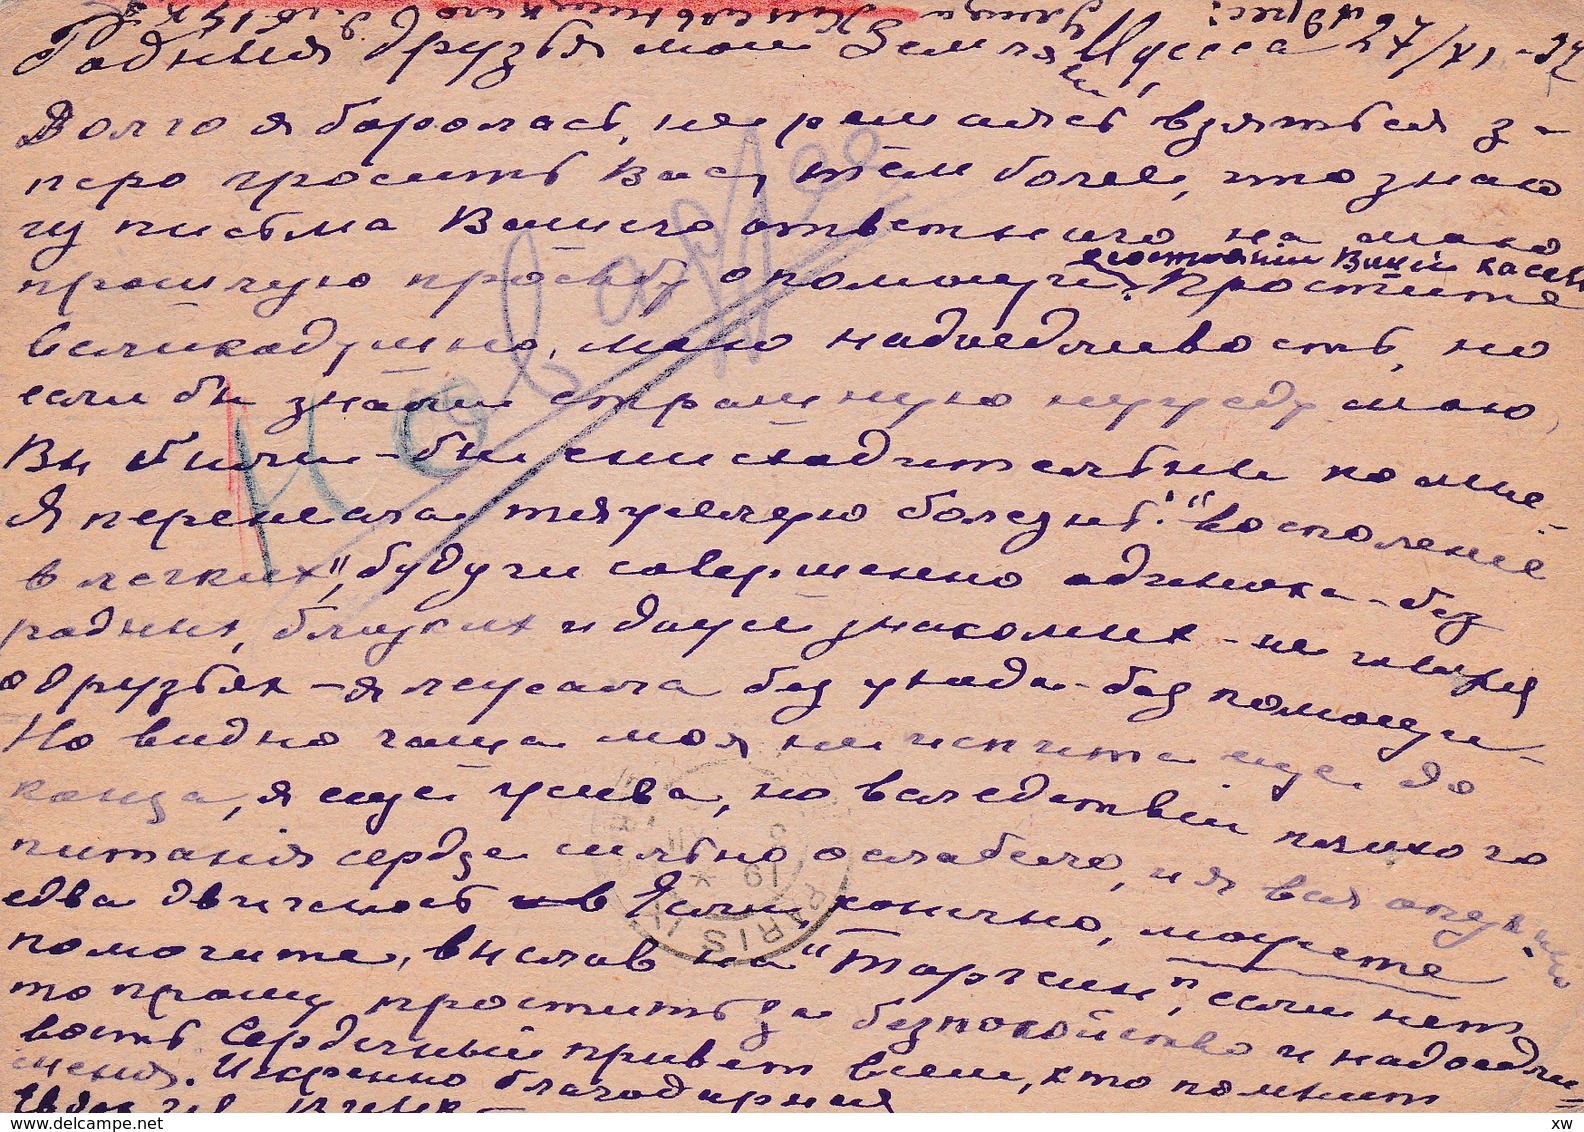 Родныя друзья мои земляки, Одесса 27/XI-32
Долго я боролась, не решаясь взяться за
перо просить Вас, тем более, что знаю
из письма Вашего ответного на мою
прошлую просьбу о помощи состоянии Вашей кассы. Простите
великодушно, мою надоедливость, но
если бы знали страшную нужду мою,
Вы были-бы снисходительны ко мне.
Я перенесла тягчайшую болезнь: "Воспаление
в легких", будучи совершенно одинока - без
родных, близких и даже знакомых - не говоря
о друзьях - я лежала без ухода - без помощи -
Но видно чаша моя не испита еще до
конца, я еще жива, но вследствии плохого
питания сердце сильно ослабело, и я вся опухшая
едва двигаюсь. Если, конечно, можете
помогите, выслав на "Торгсин", если нет
то прошу простить за безпокойство и надоедли=
вость. Сердечный привет всем, кто помнит
меня. Искренно благодарная
PARIS
19
xw